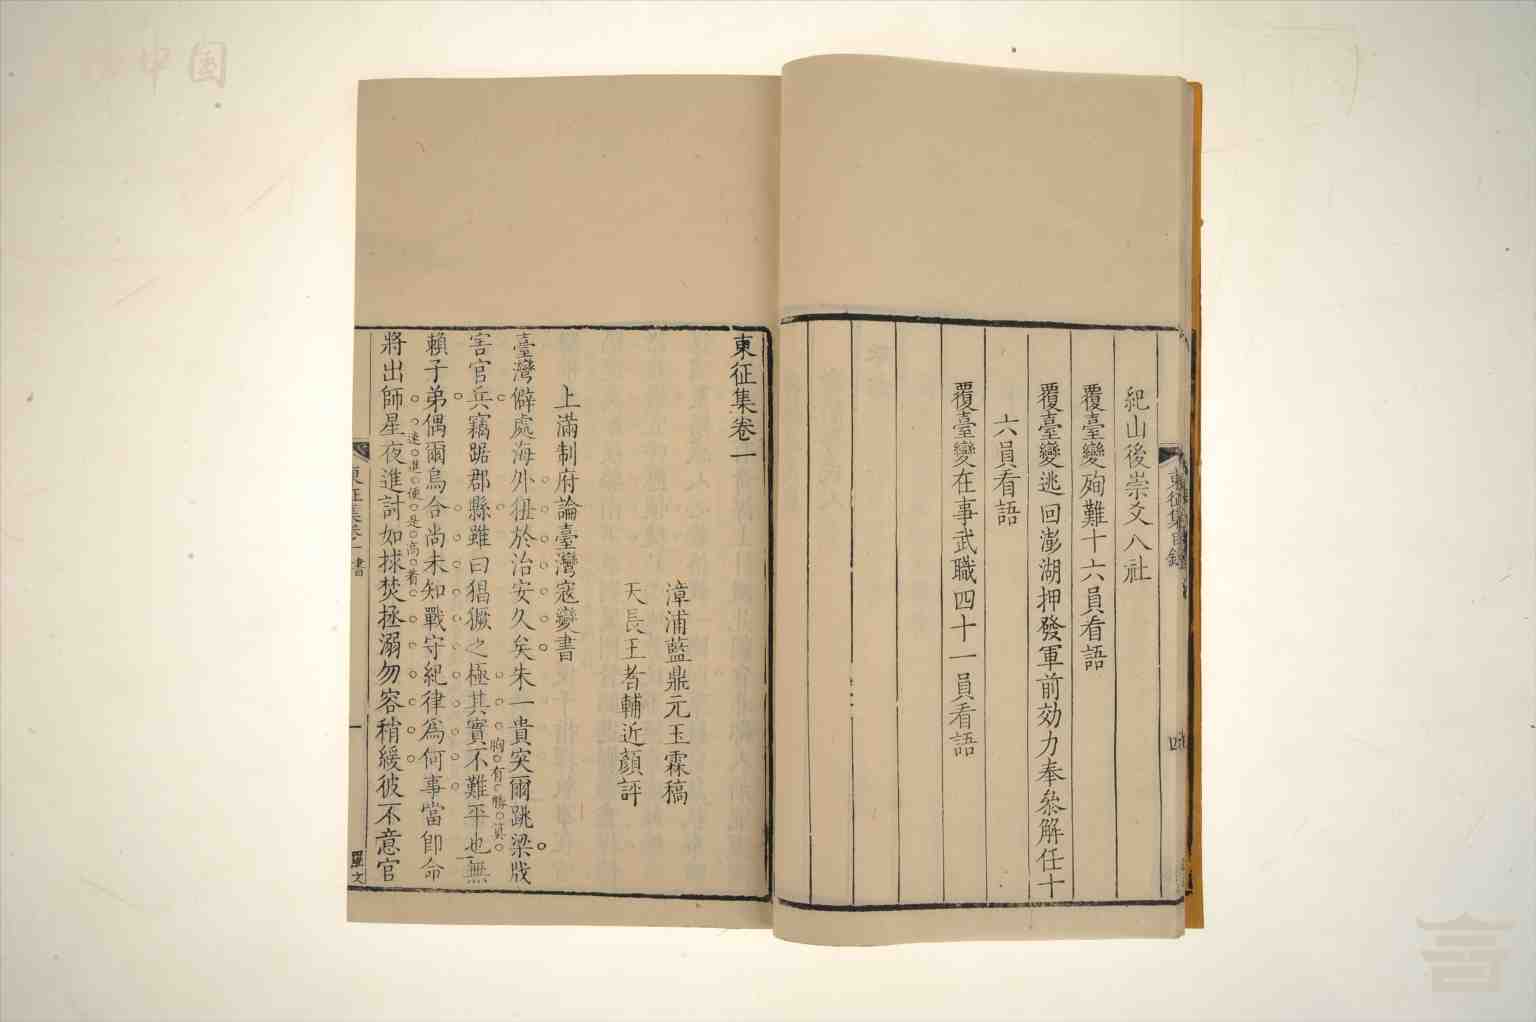 紀山後崇文八社
覆臺變殉難十六員看語
覆臺變逃回澎湖押發軍前効力奉叅解任十
六員看語
覆臺變在事武職四十一員看語
東征集卷一
漳浦藍鼎元玉霖稿
天長王者輔近顏評
上滿制府論臺灣寇變書
臺灣僻處海外狃於治安久矣朱一貴突爾跳梁戕
胸有勝算
害官兵竊踞郡縣雖曰猖獗之極其實不難平也無
賴子弟偶爾烏合尚未知戰守紀律爲何事當卽命
速進便是高着
將出師星夜進討如捄焚拯溺勿容稍緩彼不意官
東征集卷一
書
一
中国